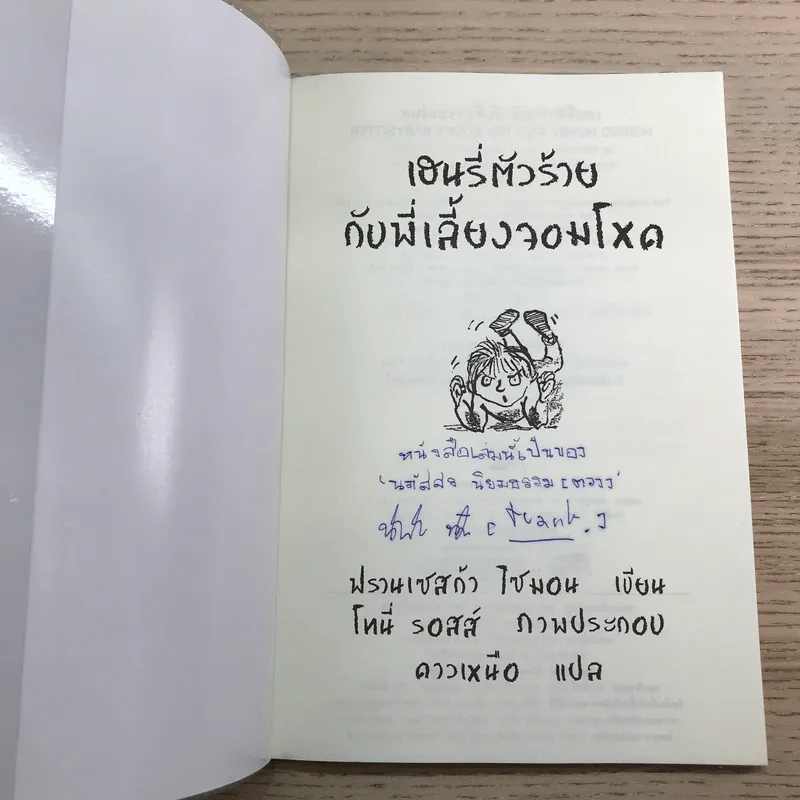 เฮนรี่ตัวร้าย
กับพี่เลี้ยงจอมโหด
หนังสือเล่มนี้เป็นของ
นิยมธรรม
ฟรานเซสก้า ไซมอน เขียน
โทนี่ รอสส์ ภาพประกอบ
ดาวเหนือ แปล